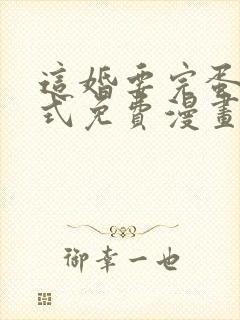 這婚要完蛋
式免費漫畫
御幸一也